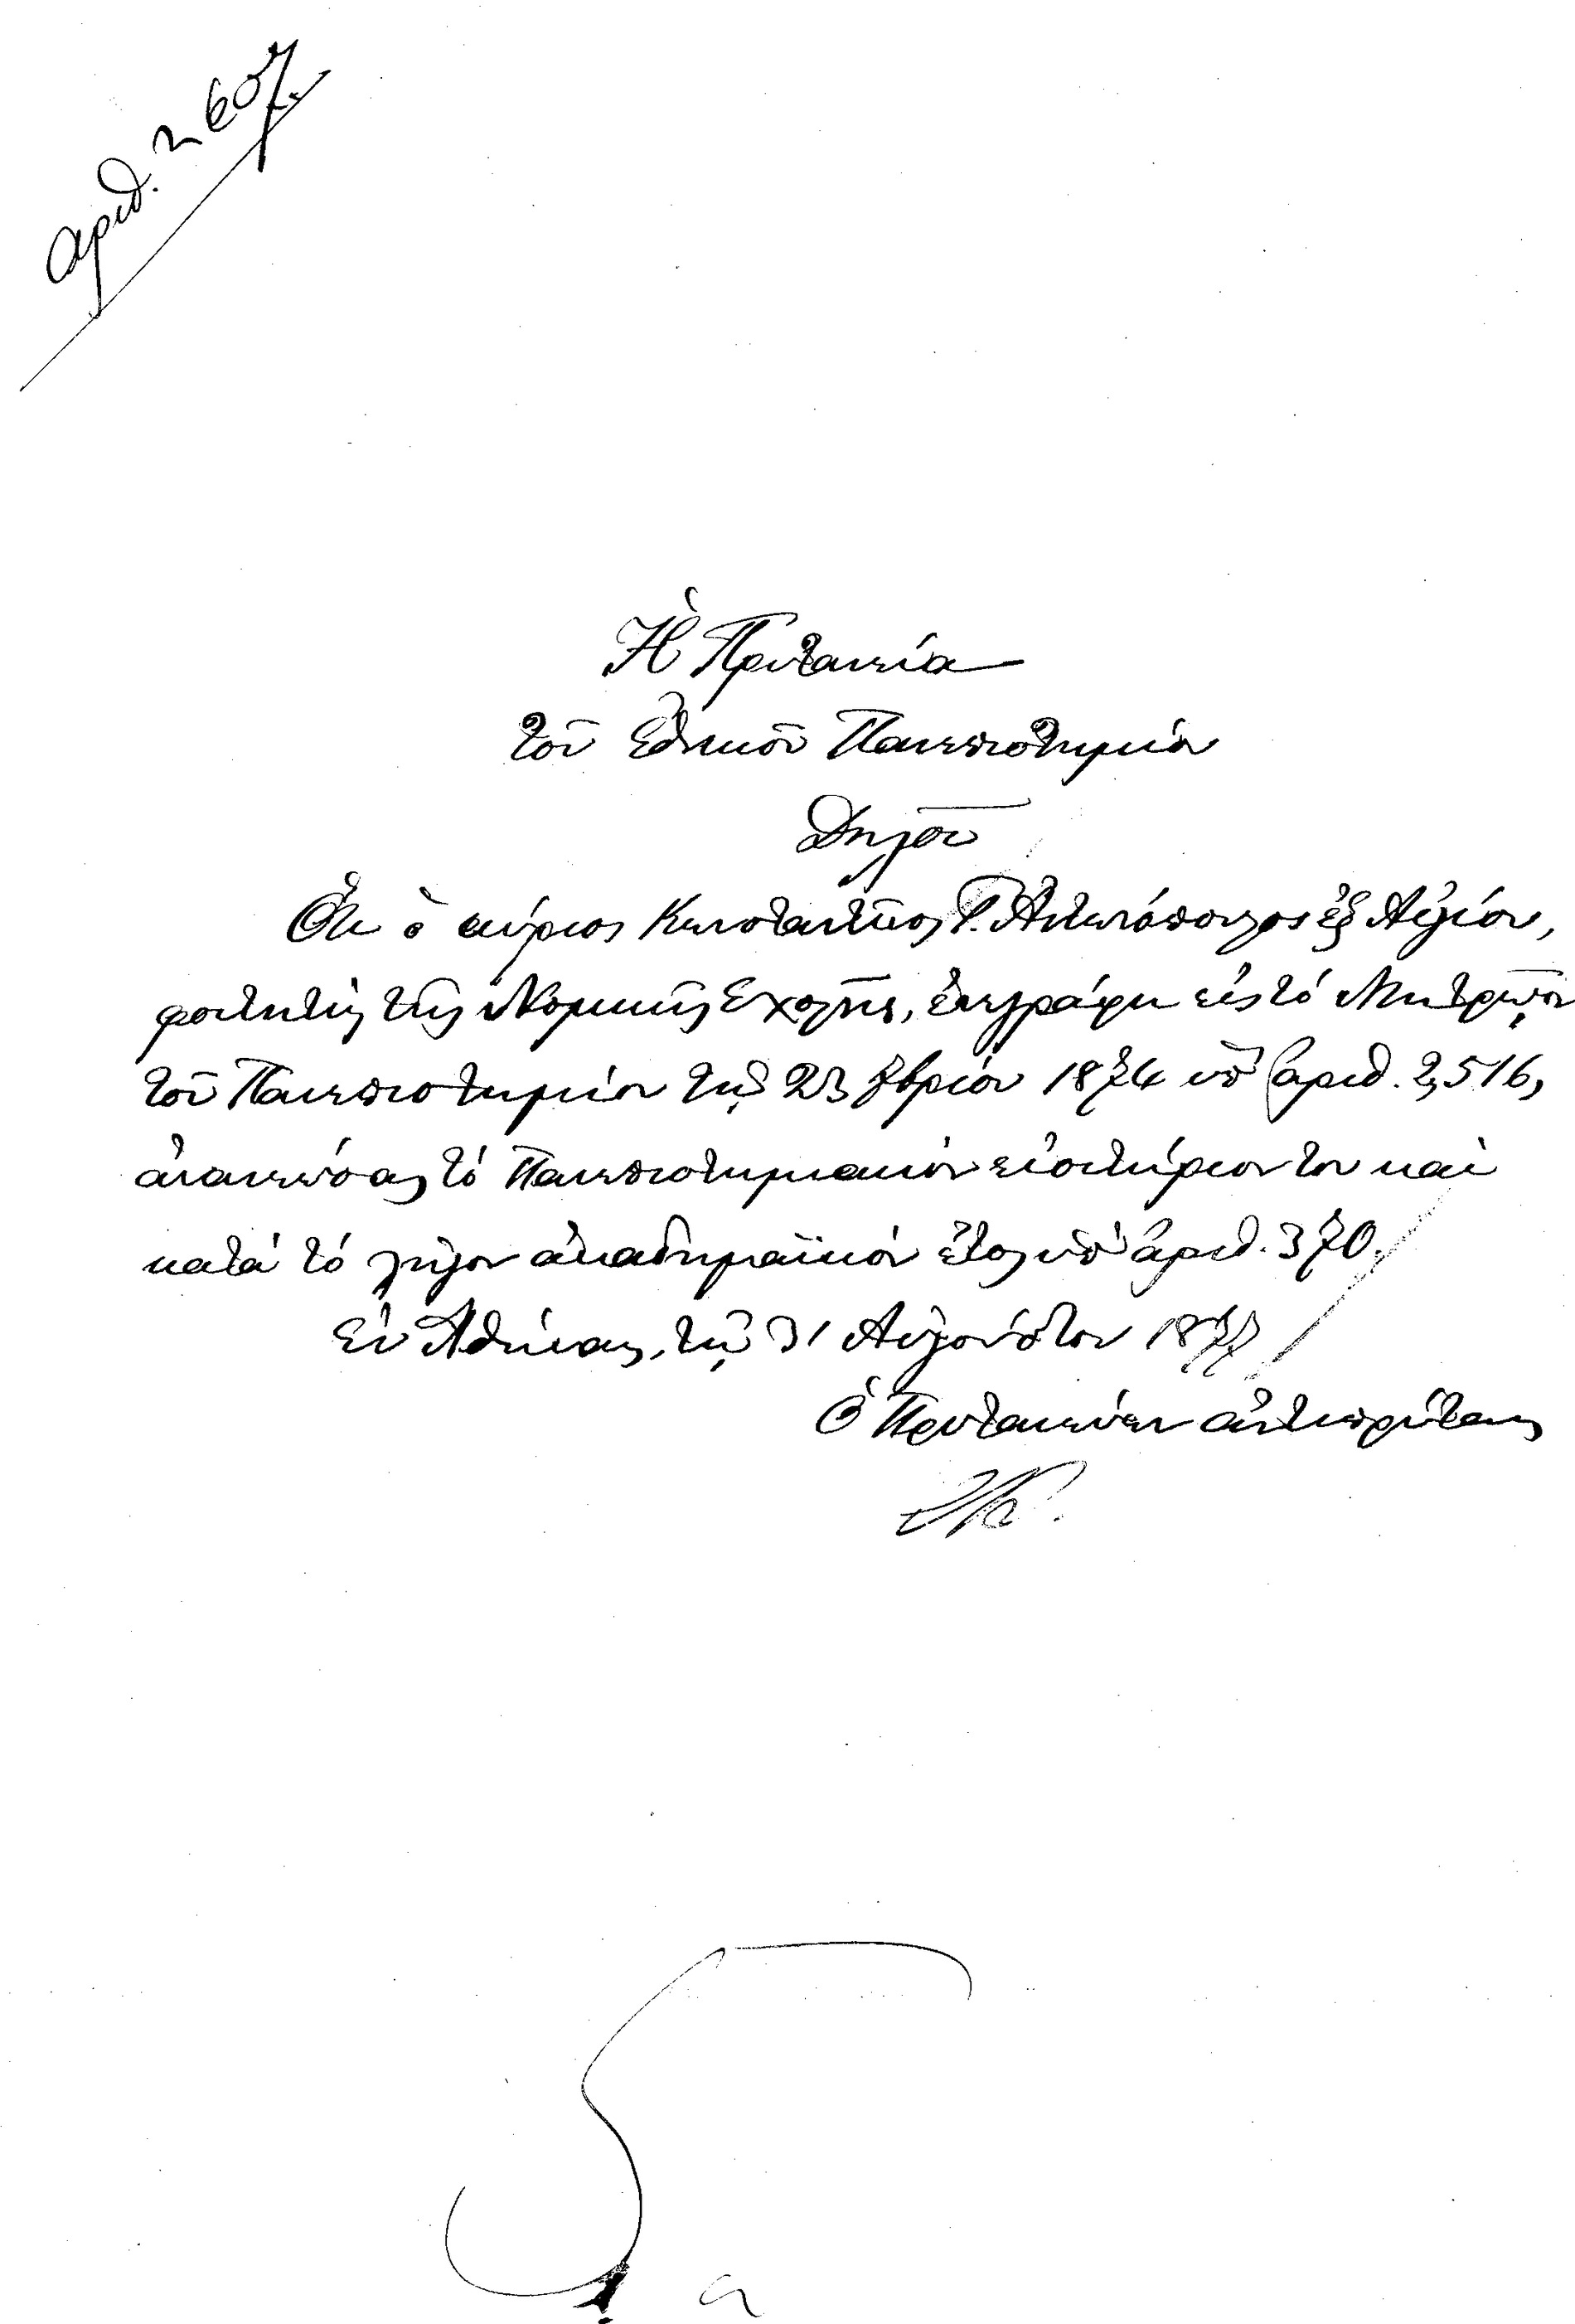 Ἀριθ. 2607.
Ἡ Πρυτανεία
τοῦ Ἐθνικοῦ Πανεπιστημίου
Δηλοῖ
Ὅτι ὁ κύριος Κωνσταντῖνος Γ. Ἀντωνόπουλος ἐξ Αἰγίου,
φοιτητὴς τῆς Νομικῆς Σχολῆς, ἐνεγράφη εἰς τό Μητρῷον
τοῦ Πανεπιστημίου τῇ 23 7βρίου 1874 ὑπ' ἀριθ. 2,516,
ἀνανεώσας τό Πανεπιστημιακόν εἰσιτήριον του καὶ
κατά τό λῆγον ἀκαδημαϊκόν ἔτος ὑπ' ἀριθ. 370.
Ἐν Ἀθήναις, τῇ 31 Αὐγούστου 1877
Ὁ Πρυτανεύων ἀντιπρύτανις